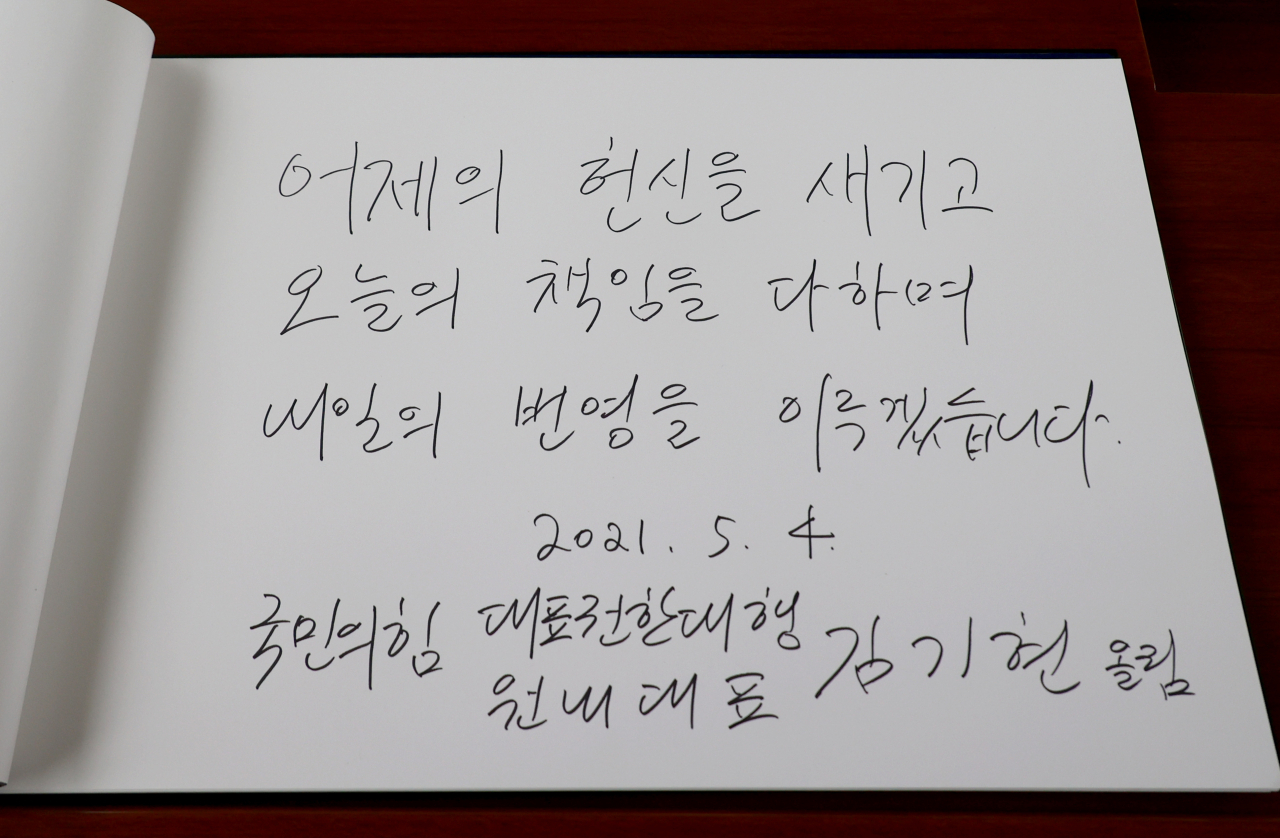 어제의 헌신을 새기고
오늘의 책임을 다하며
내일의 번영을 이루겠습니다.
2021. 5. 4.
국민의힘 대표권한대행 김기현 올림
원내대표